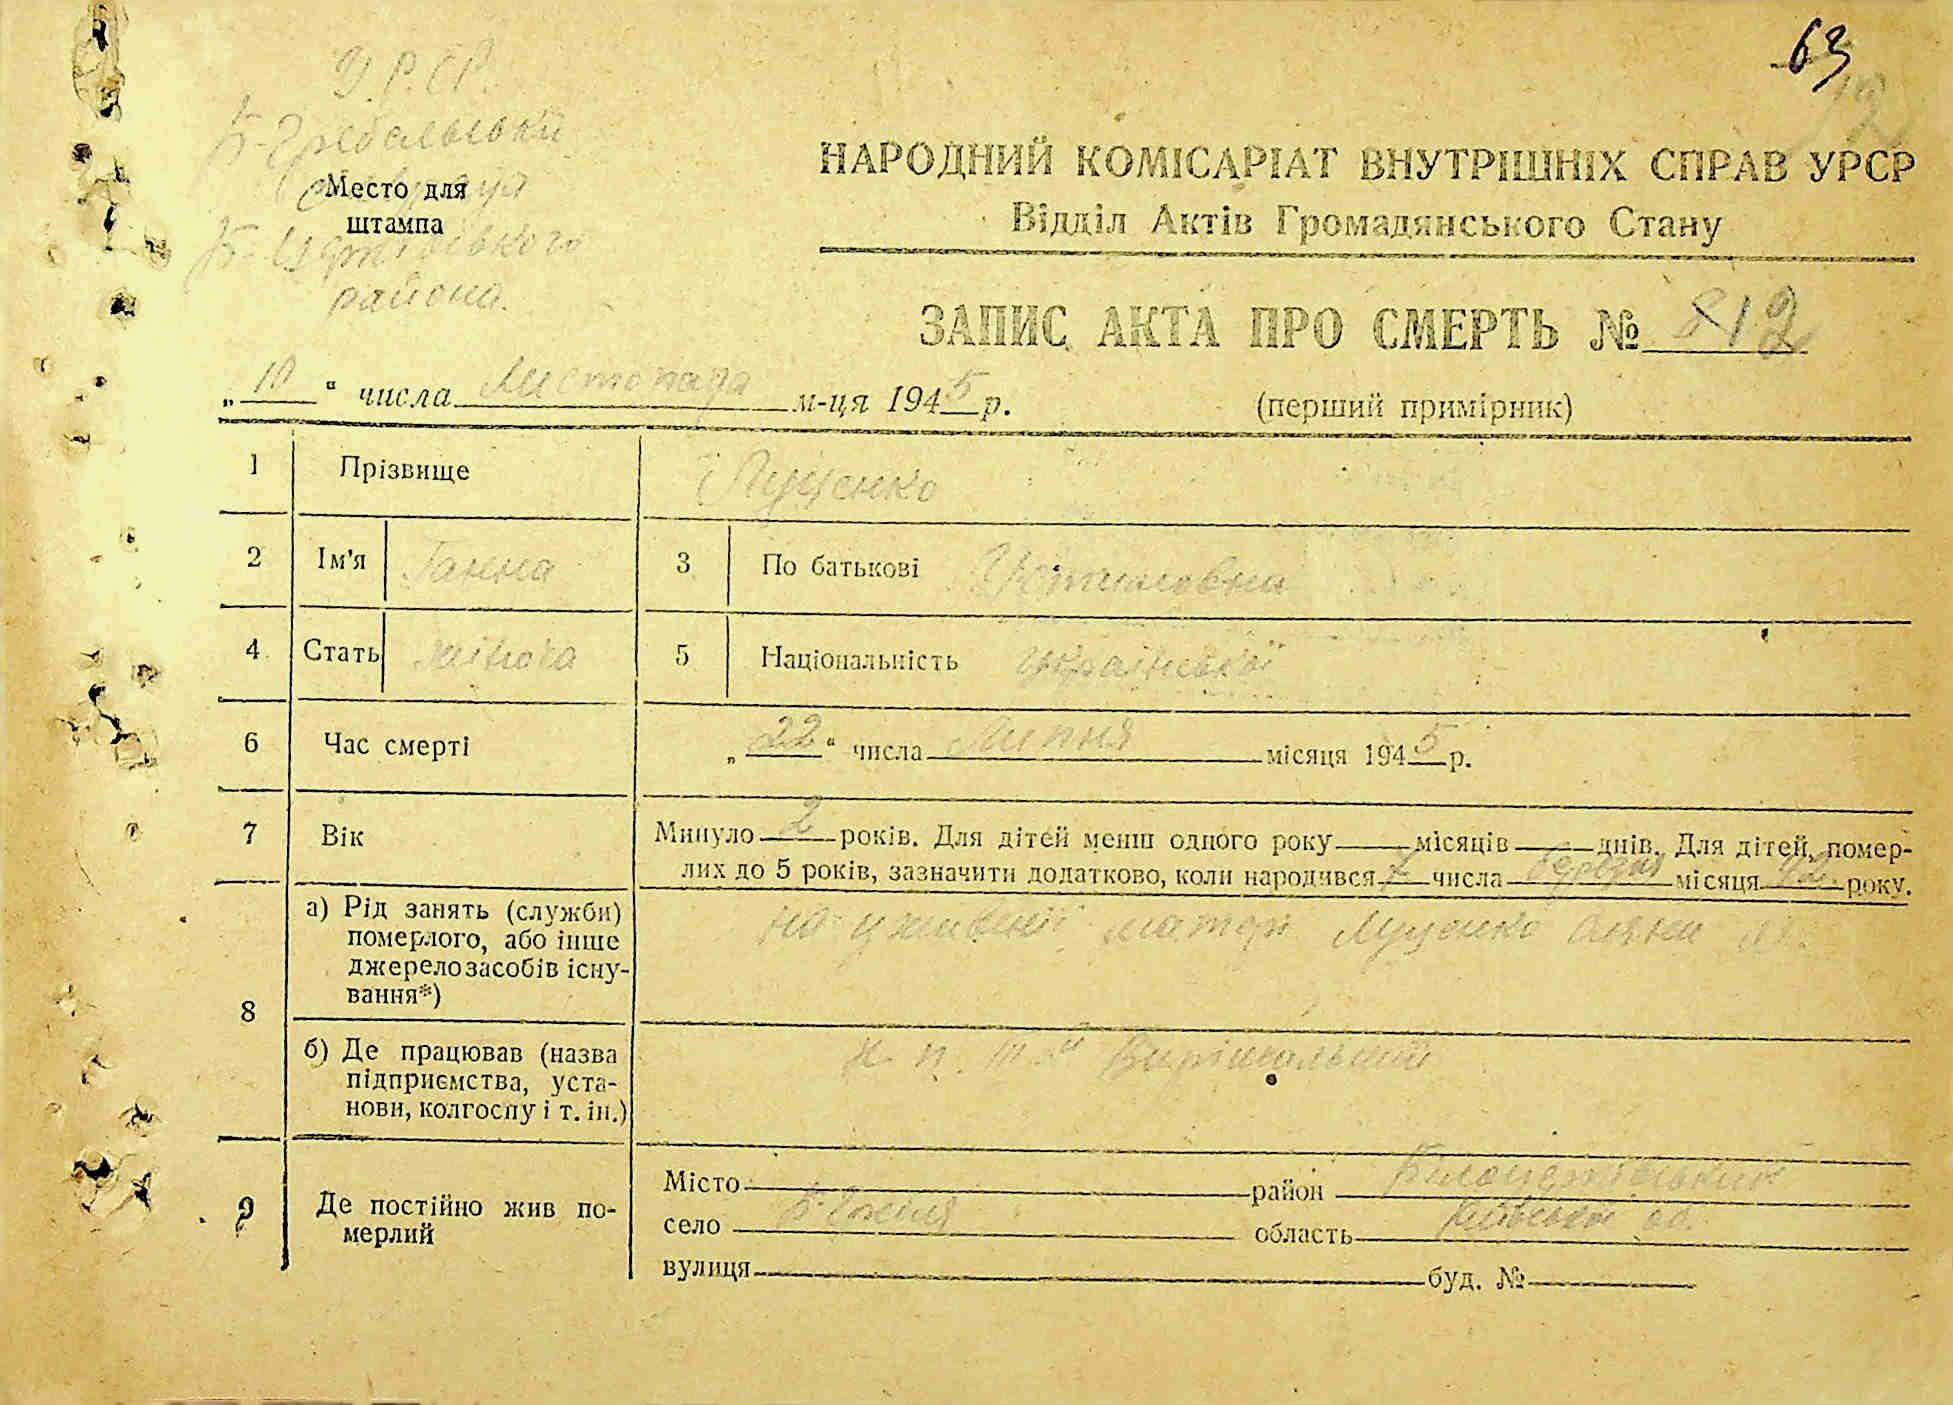 63
У.Р.С.Р.
Место для
штампа
района.
НАРОДНИЙ КОМІСАРІАТ ВНУТРІШНІХ СПРАВ УРСР
Відділ Актів Громадянського Стану
ЗАПИС АКТА ПРО СМЕРТЬ № 812
„10" числа Листопада м-ця 1945 р.
(перший примірник)
1 Прізвище Луценко
2 Ім'я Ганна 3 По батькові
4 Стать жіноча 5 Національність української
6 Час смерті „22" числа Липня місяця 1945 р.
7 Вік Минуло 2 років. Для дітей менш одного року місяців днів. Для дітей, помер-
лих до 5 років, зазначити додатково, коли народився числа березня місяця 42. року.
8 а) Рід занять (служби)
померлого, або інше
джерело засобів існу-
вання*)
на уживенії матери Луценко
б) Де працював (назва
підприємства, уста-
нови, колгоспу і т. ін.)
9 Де постійно жив по-
мерлий
Місто район Білоцерківський
село область Київської об.
вулиця буд. №